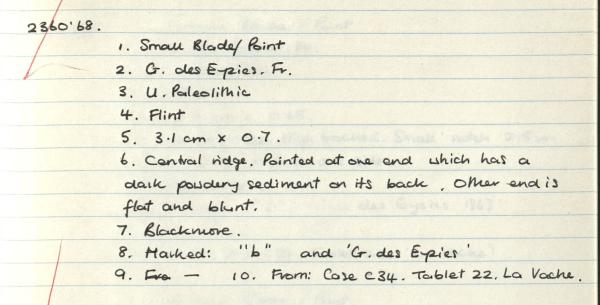 2360'68.
1. Small Blade/Point
2. G. des Eyzies. Fr.
3. U. Paleolithic
4. Flint
5. 3.1 cm x 0.7.
6. Central ridge. Pointed at one end which has a
dark powdery sediment on its back. Other end is
flat and blunt.
7. Blackmore.
8. Marked: "b" and 'G. des Eyzies'
9. — 10. From: Case C34. Tablet 22. La Vache.